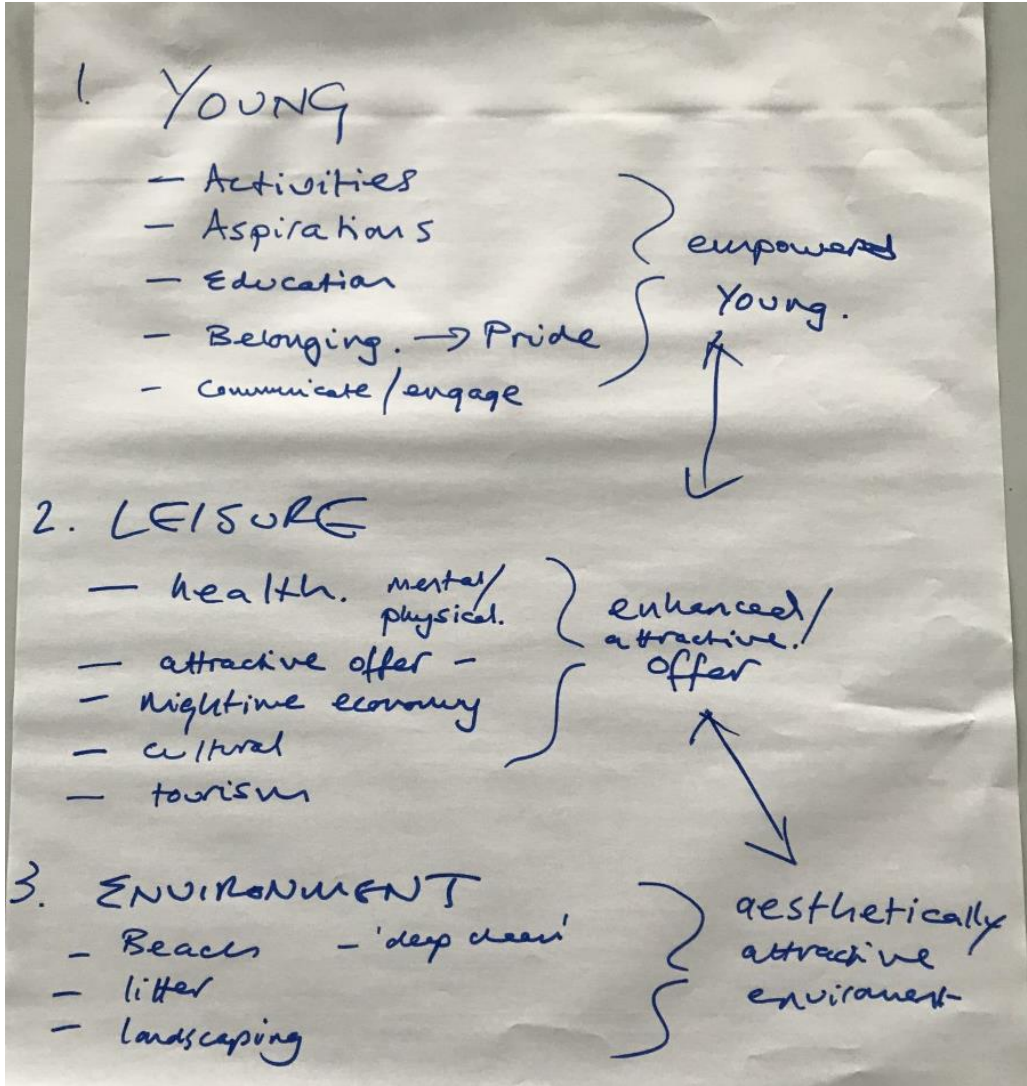 1. YOUNG
— Activities
— Aspirations
— Education
— Belonging. → Pride
- Communicate/engage
empowered
Young.
2. LEISURE
— health. mental/
physical.
— attractive offer -
— nightime economy
— cultural
— tourism
enhanced/
attractive/
offer
3. ENVIRONMENT
- Beach - 'deep clean'
— litter
— landscaping
aesthetically
attractive
enviroment